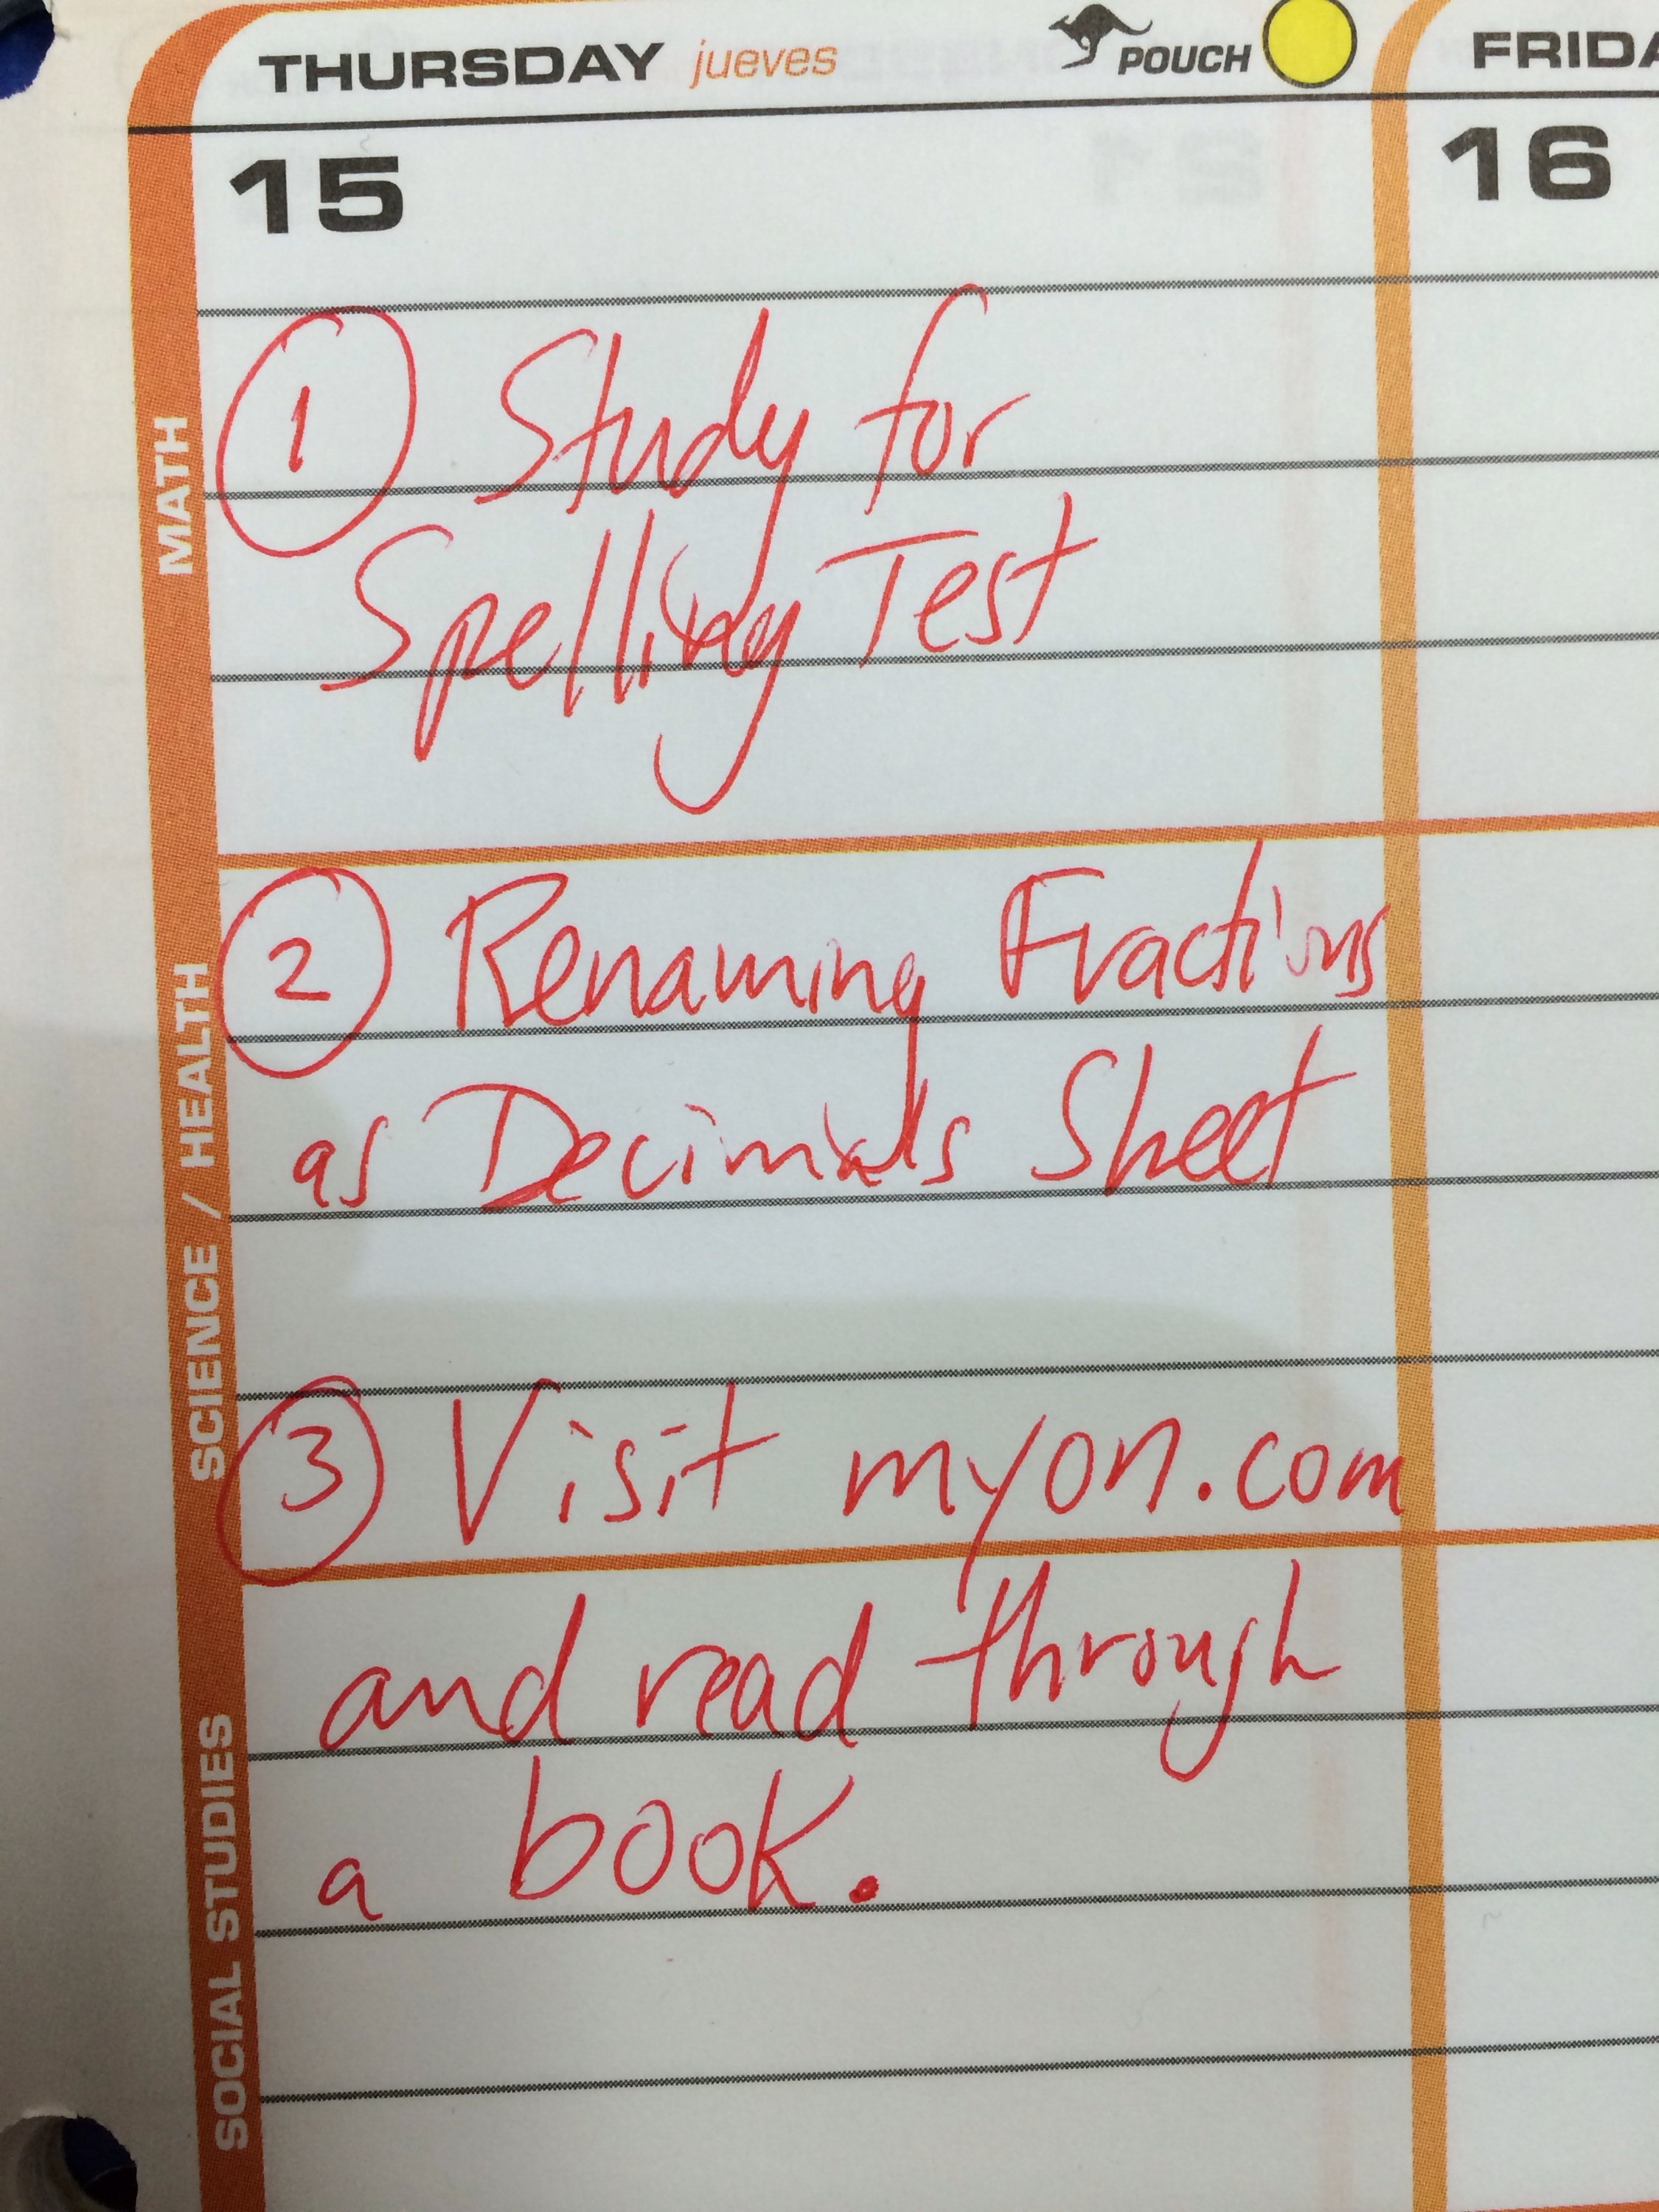 THURSDAY jueves POUCH
15
MATH
① Study for
Spelling Test
SCIENCE / HEALTH
② Renaming Fractions
as Decimals Sheet
③ Visit myon.com
SOCIAL STUDIES
and read through
a book.
FRIDA
16